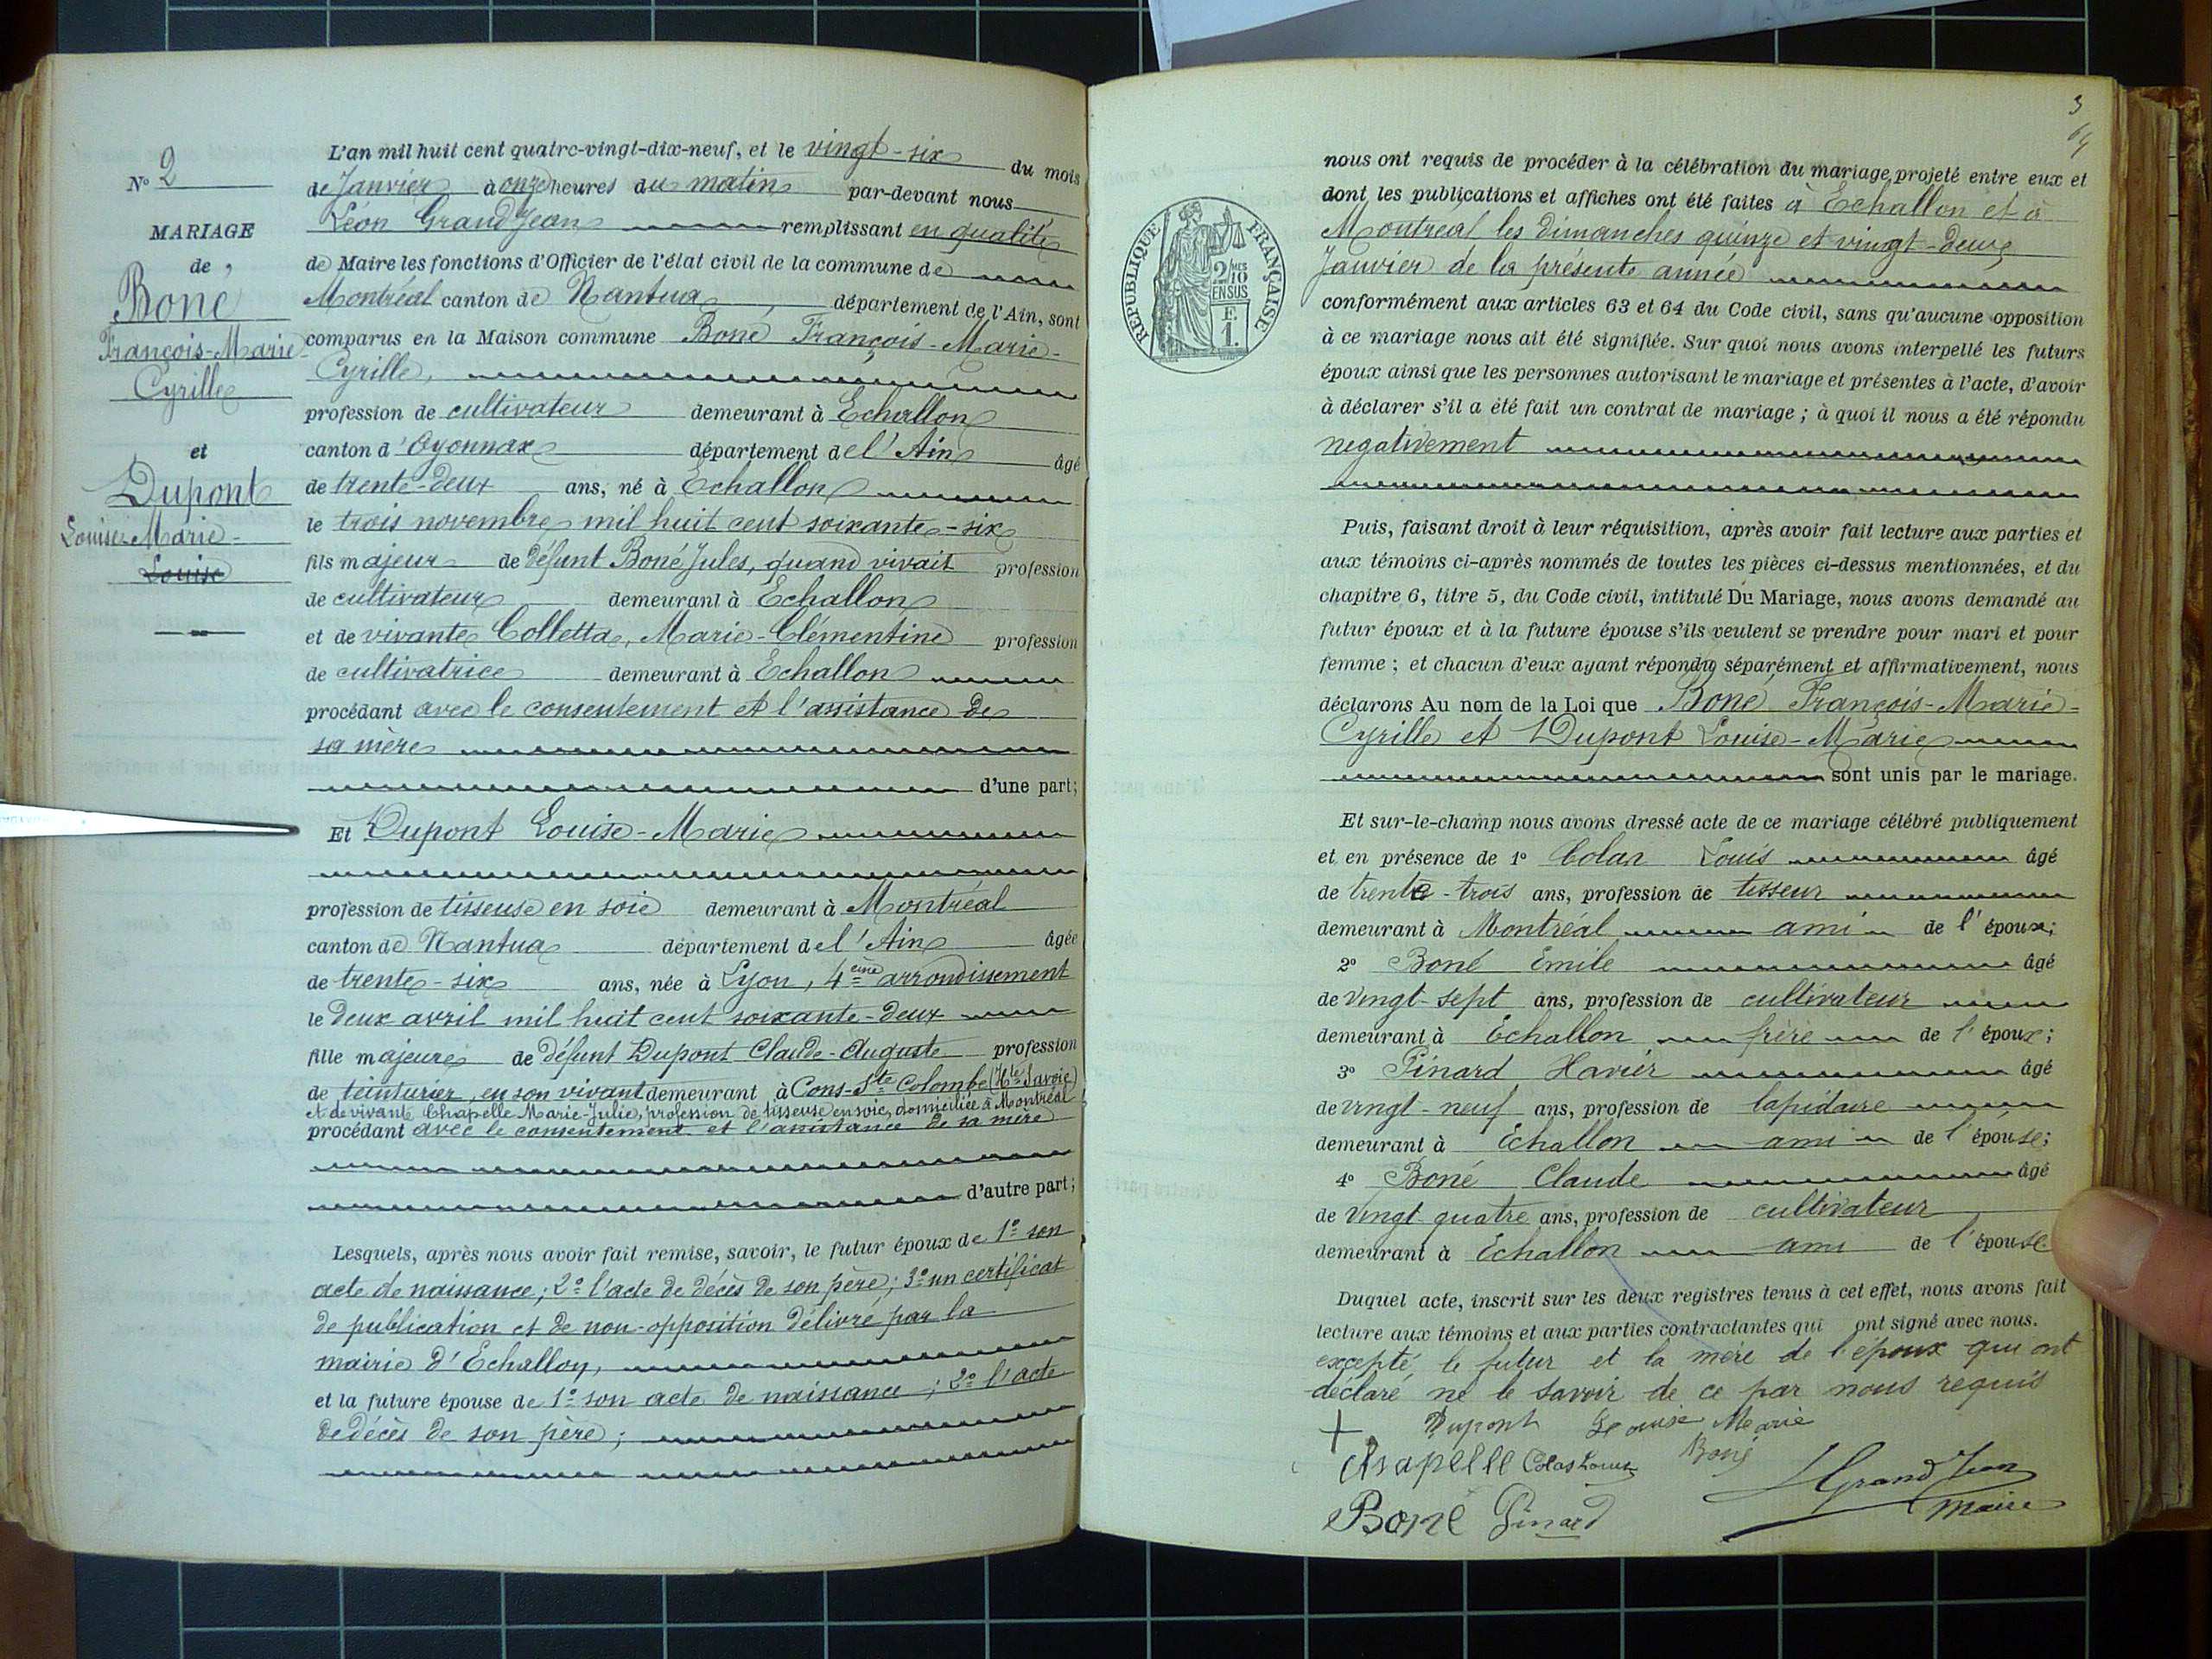 N° 2
MARIAGE
de
Boné
François-Marie-
Cyrille
et
Dupont
Louise-Marie-
Louise
L'an mil huit cent quatre-vingt-dix-neuf, et le vingt-six du mois
de Janvier à onze heures du matin par-devant nous
Léon GrandJean remplissant en qualité
de Maire les fonctions d'Officier de l'état civil de la commune de
Montréal canton de Nantua, département de l'Ain, sont
comparus en la Maison commune Boné François-Marie-
Cyrille,
profession de cultivateur demeurant à Echallon
canton d'Oyonnax département de l'Ain âgé
de trente-deux ans, né à Echallon
le trois novembre mil huit cent soixante-six
fils majeur de défunt Boné Jules, quand vivait profession
de cultivateur demeurant à Echallon
et de vivante Colletta, Marie-Clémentine profession
de cultivatrice demeurant à Echallon
procédant avec le consentement et l'assistance de
sa mère
d'une part;
Et Dupont Louise-Marie
profession de tisseuse en soie demeurant à Montréal
canton de Nantua département de l'Ain âgée
de trente-six ans, née à Lyon, 4ème arrondissement
le deux avril mil huit cent soixante-deux
fille majeure de défunt Dupont Claude-Auguste profession
de teinturier, en son vivant demeurant à Cons-Ste Colombe (Hte Savoie)
et de vivante Chapelle Marie-Julie, profession de tisseuse en soie, domiciliée à Montréal
procédant avec le consentement et l'assistance de sa mère
d'autre part;
Lesquels, après nous avoir fait remise, savoir, le futur époux de 1° son
acte de naissance; 2° l'acte de décès de son père; 3° un certificat
de publication et de non-opposition délivré par la
mairie d'Echallon,
et la future épouse de 1° son acte de naissance; 2° l'acte
de décès de son père;
3
64
RÉPUBLIQUE FRANÇAISE
2/10 MES
EN SUS
F.
1.
nous ont requis de procéder à la célébration du mariage projeté entre eux et
dont les publications et affiches ont été faites à Echallon et à
Montréal les dimanches quinze et vingt-deux
Janvier de la présente année
conformément aux articles 63 et 64 du Code civil, sans qu'aucune opposition
à ce mariage nous ait été signifiée. Sur quoi nous avons interpellé les futurs
époux ainsi que les personnes autorisant le mariage et présentes à l'acte, d'avoir
à déclarer s'il a été fait un contrat de mariage; à quoi il nous a été répondu
negativement
Puis, faisant droit à leur réquisition, après avoir fait lecture aux parties et
aux témoins ci-après nommés de toutes les pièces ci-dessus mentionnées, et du
chapitre 6, titre 5, du Code civil, intitulé Du Mariage, nous avons demandé au
futur époux et à la future épouse s'ils veulent se prendre pour mari et pour
femme; et chacun d'eux ayant répondu séparément et affirmativement, nous
déclarons Au nom de la Loi que Boné François-Marie-
Cyrille et Dupont Louise-Marie
sont unis par le mariage.
Et sur-le-champ nous avons dressé acte de ce mariage célébré publiquement
et en présence de 1° Colas Louis âgé
de trente-trois ans, profession de tisseur
demeurant à Montréal ami de l'époux;
2° Boné Emile âgé
de vingt-sept ans, profession de cultivateur
demeurant à Echallon frère de l'époux;
3° Pinard Xavier âgé
de vingt-neuf ans, profession de lapidaire
demeurant à Echallon ami de l'épouse;
4° Boné Claude âgé
de vingt-quatre ans, profession de cultivateur
demeurant à Echallon ami de l'épouse.
Duquel acte, inscrit sur les deux registres tenus à cet effet, nous avons fait
lecture aux témoins et aux parties contractantes qui ont signé avec nous.
excepté le futur et la mère de l'époux qui ont
déclaré ne le savoir de ce par nous requis
Dupont Louise Marie
Chapelle Colas Louis Boné
Boné Pinard LGrandJean
Maire